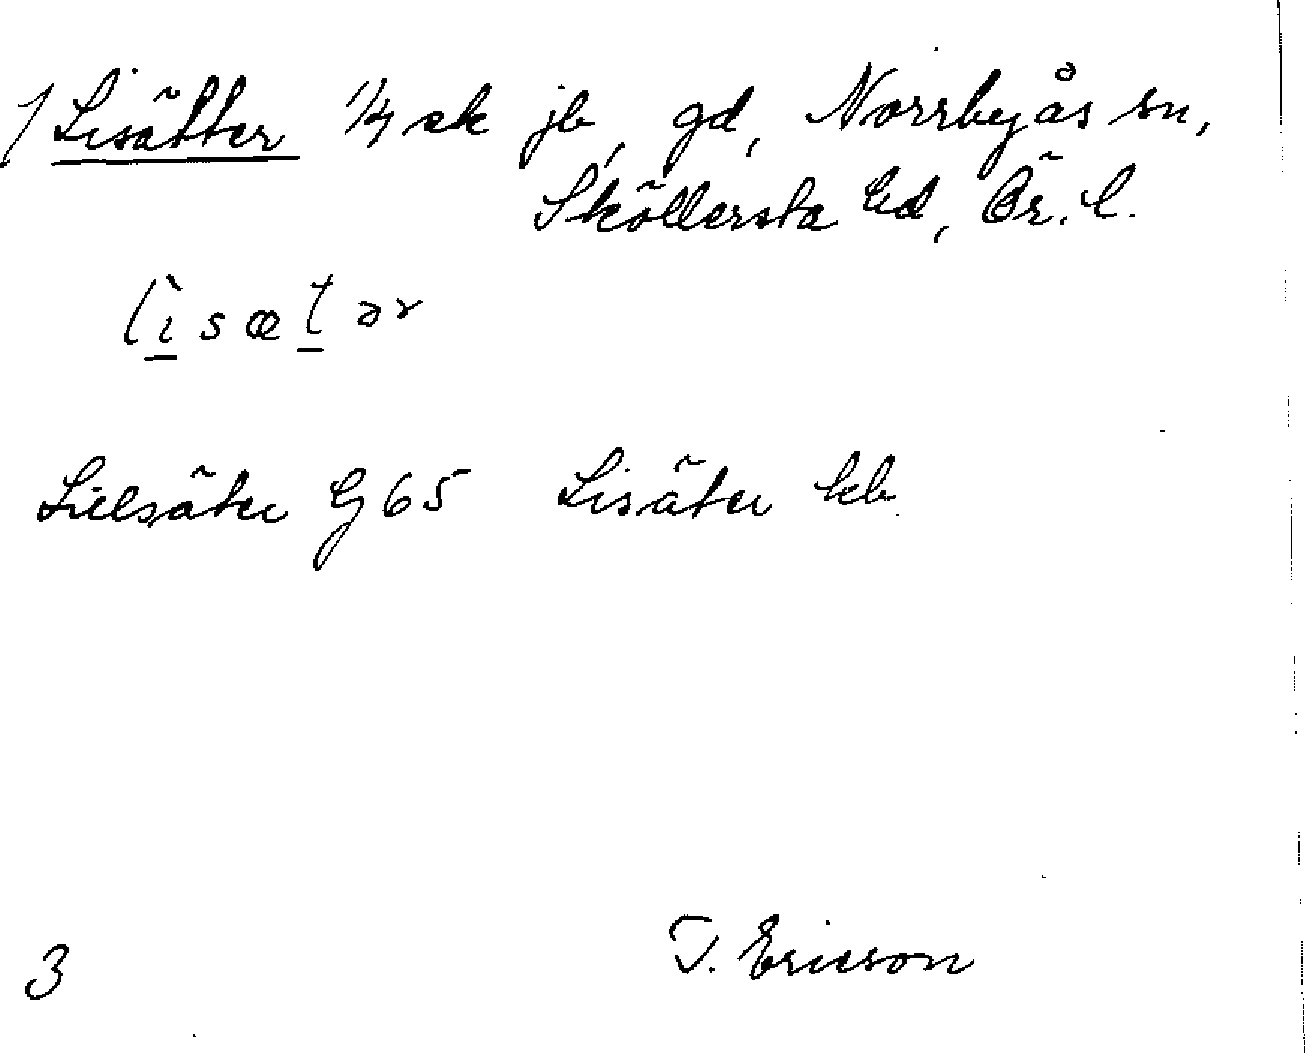 / Lisätter 1/4 sk jb, gd, Norrbyås sn,
Sköllersta hd, Ör. l.
lìsætər
Lielsäter G 65 Lisäter kb
3 T. Ericson